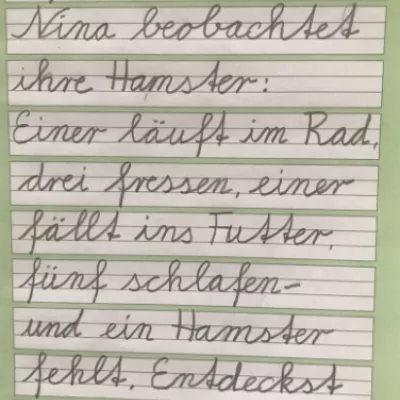 Nina beobachtet
ihre Hamster:
Einer läuft im Rad,
drei fressen, einer
fällt ins Futter,
fünf schlafen-
und ein Hamster
fehlt. Entdeckst